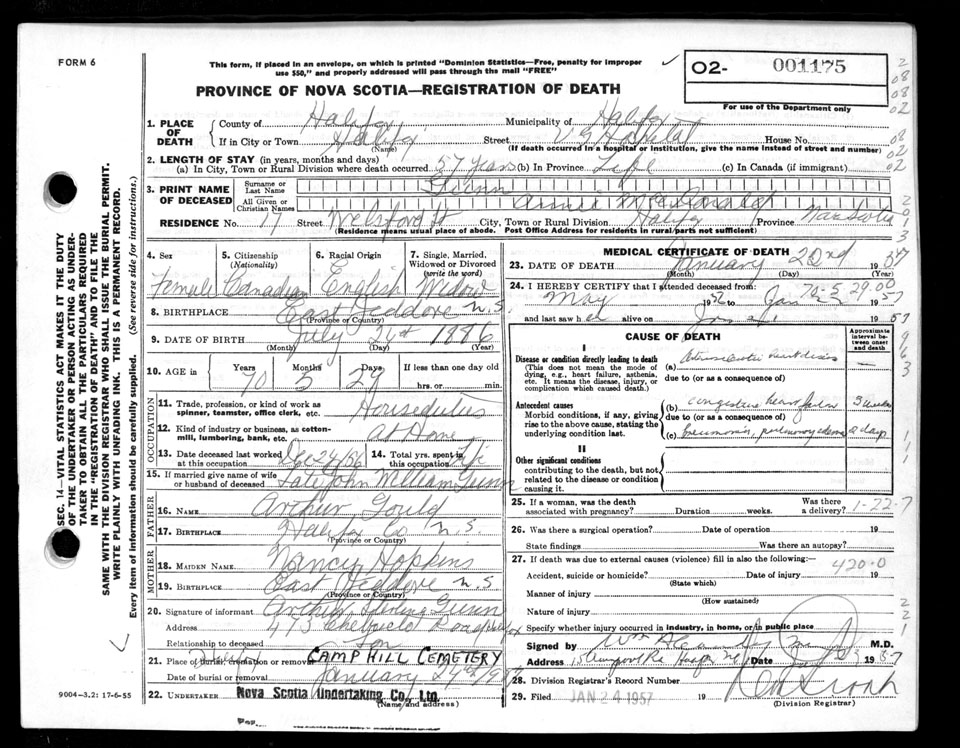 FORM 6
This form, if placed in an envelope, on which is printed "Dominion Statistics—Free, penalty for improper
use $50," and properly addressed will pass through the mail "FREE"
O2- 001175
For use of the Department only
PROVINCE OF NOVA SCOTIA—REGISTRATION OF DEATH
1. PLACE OF DEATH County of Halifax Municipality of Halifax
If in City or Town Halifax (Name) Street V G Hospital House No.
(If death occurred in a hospital or institution, give the name instead of street and number)
2. LENGTH OF STAY (in years, months and days)
(a) In City, Town or Rural Division where death occurred 57 years (b) In Province Life (c) In Canada (if immigrant)
3. PRINT NAME OF DECEASED Surname or Last Name Gunn
All Given or Christian Names Annie McDonald
RESIDENCE No. 17 Street Welsford St City, Town or Rural Division Halifax Province Nova Scotia
(Residence means usual place of abode. Post Office Address for residents in rural parts not sufficient)
4. Sex 5. Citizenship (Nationality) 6. Racial Origin 7. Single, Married, Widowed or Divorced (write the word)
Female Canadian English Widow
8. BIRTHPLACE East Jeddore N.S.
(Province or Country)
9. DATE OF BIRTH July 24th 1886
(Month) (Day) (Year)
10. AGE in Years Months Days If less than one day old
70 5 29 hrs. or min.
OCCUPATION
11. Trade, profession, or kind of work as spinner, teamster, office clerk, etc. Houseduties
12. Kind of industry or business, as cotton-mill, lumbering, bank, etc. At Home
13. Date deceased last worked at this occupation Dec 24/56 14. Total yrs. spent in this occupation Life
15. If married give name of wife or husband of deceased Late John William Gunn
FATHER
16. NAME Arthur Gould
17. BIRTHPLACE Halifax Co N.S.
(Province or Country)
MOTHER
18. MAIDEN NAME Nancy Hopkins
19. BIRTHPLACE East Jeddore N.S
(Province or Country)
20. Signature of informant Arthur Sterling Gunn
Address
Relationship to deceased Son
21. Place of burial, cremation or removal CAMP HILL CEMETERY
Date of burial or removal January 24th/57
22. UNDERTAKER Nova Scotia Undertaking Co., Ltd.
(Name and address)
MEDICAL CERTIFICATE OF DEATH
23. DATE OF DEATH January 22nd 1957
(Month) (Day) (Year)
70-5-29.00
24. I HEREBY CERTIFY that I attended deceased from:
May 1952 to Jan 22 1957
and last saw her alive on Jan 1957
CAUSE OF DEATH
Approximate interval between onset and death
I
Disease or condition directly leading to death (a)
(This does not mean the mode of dying, e.g., heart failure, asthenia, etc. It means the disease, injury, or complication which caused death.)
due to (or as a consequence of)
Antecedent causes (b) congestive heart failure 3 weeks
Morbid conditions, if any, giving rise to the above cause, stating the underlying condition last.
due to (or as a consequence of)
(c) Pneumonia, pulmonary edema 2 days
II
Other significant conditions
contributing to the death, but not related to the disease or condition causing it.
25. If a woman, was the death associated with pregnancy? Duration weeks. Was there a delivery? 1-22-7
26. Was there a surgical operation? Date of operation 19
State findings Was there an autopsy?
27. If death was due to external causes (violence) fill in also the following:—
420.0
Accident, suicide or homicide? Date of injury 19
(State which)
Manner of injury
(How sustained)
Nature of injury
Specify whether injury occurred in industry, in home, or in public place
Signed by M.D.
Address Date 1957
28. Division Registrar's Record Number
29. Filed JAN 24 1957 19
(Division Registrar)
SEC. 14—VITAL STATISTICS ACT MAKES IT THE DUTY
OF THE UNDERTAKER OR PERSON ACTING AS UNDER-
TAKER TO OBTAIN ALL THE PARTICULARS REQUIRED
IN THE "REGISTRATION OF DEATH" AND TO FILE THE
SAME WITH THE DIVISION REGISTRAR WHO SHALL ISSUE THE BURIAL PERMIT.
WRITE PLAINLY WITH UNFADING INK. THIS IS A PERMANENT RECORD.
Every item of information should be carefully supplied. (See reverse side for instructions.)
9004-3.2: 17-6-55